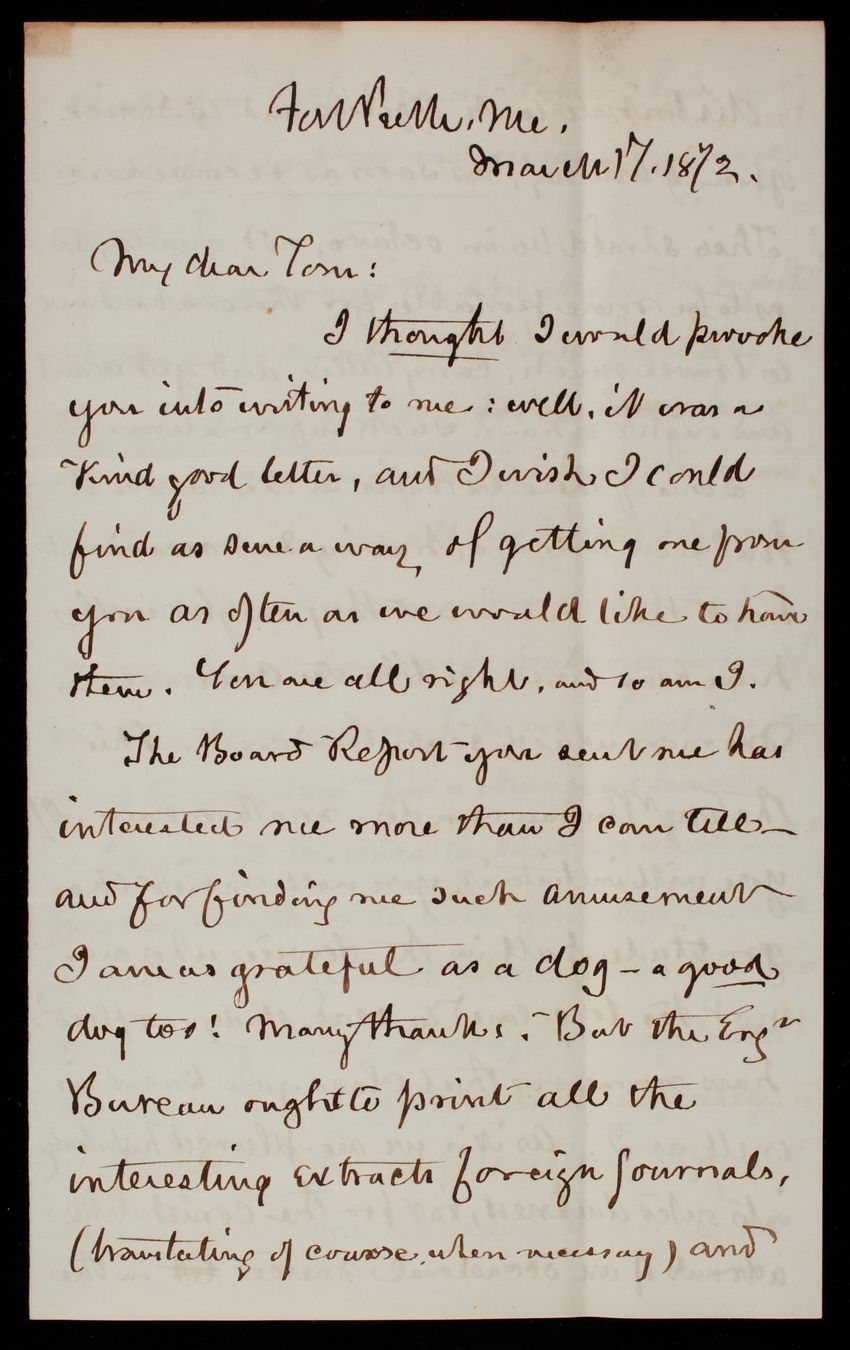 Portland, Me.
March 17, 1872.
My dear Tom:
I thought I would provoke
you into writing to me: well, it was a
kind good letter, and I wish I could
find as sure a way of getting one from
you as often as we would like to have
them. You are all right, and so am I.
The Board Report you sent me has
interested me more than I can tell—
and for finding me such amusement
I am as grateful as a dog – a good
dog too! Many thanks. But the Engr
Bureau ought to print all the
interesting extracts foreign journals,
(translating of course, when necessary) and